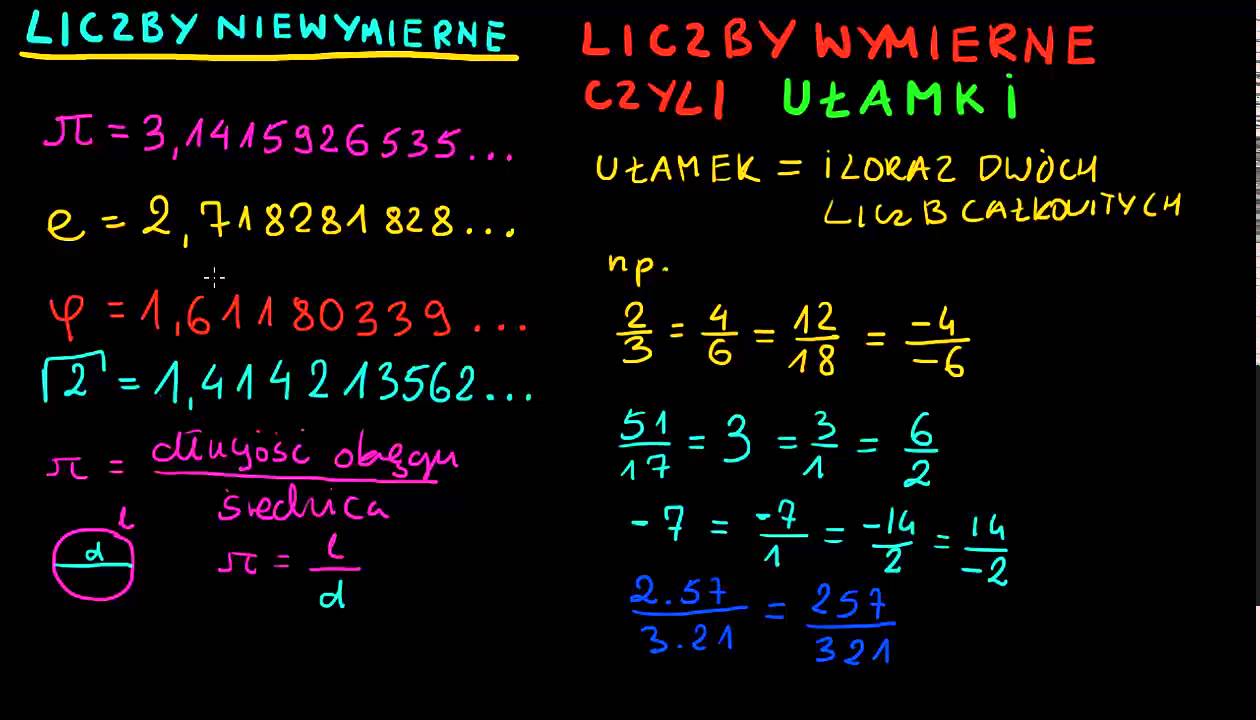 LICZBY NIEWYMIERNE
π = 3,1415926535...
e = 2,718281828...
φ = 1,61180339...
√2 = 1,41421213562...
π = długość okręgu / średnica
l
d
π = l / d
LICZBY WYMIERNE
CZYLI UŁAMKI
UŁAMEK = ILORAZ DWÓCH
LICZB CAŁKOWITYCH
np.
2/3 = 4/6 = 12/18 = -4/-6
51/17 = 3 = 3/1 = 6/2
-7 = -7/1 = -14/2 = 14/-2
2.57/3.21 = 257/321